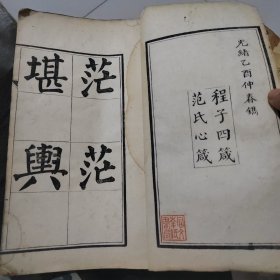 光緒乙酉仲春鐫
程子四箴
范氏心箴
茫茫
堪輿